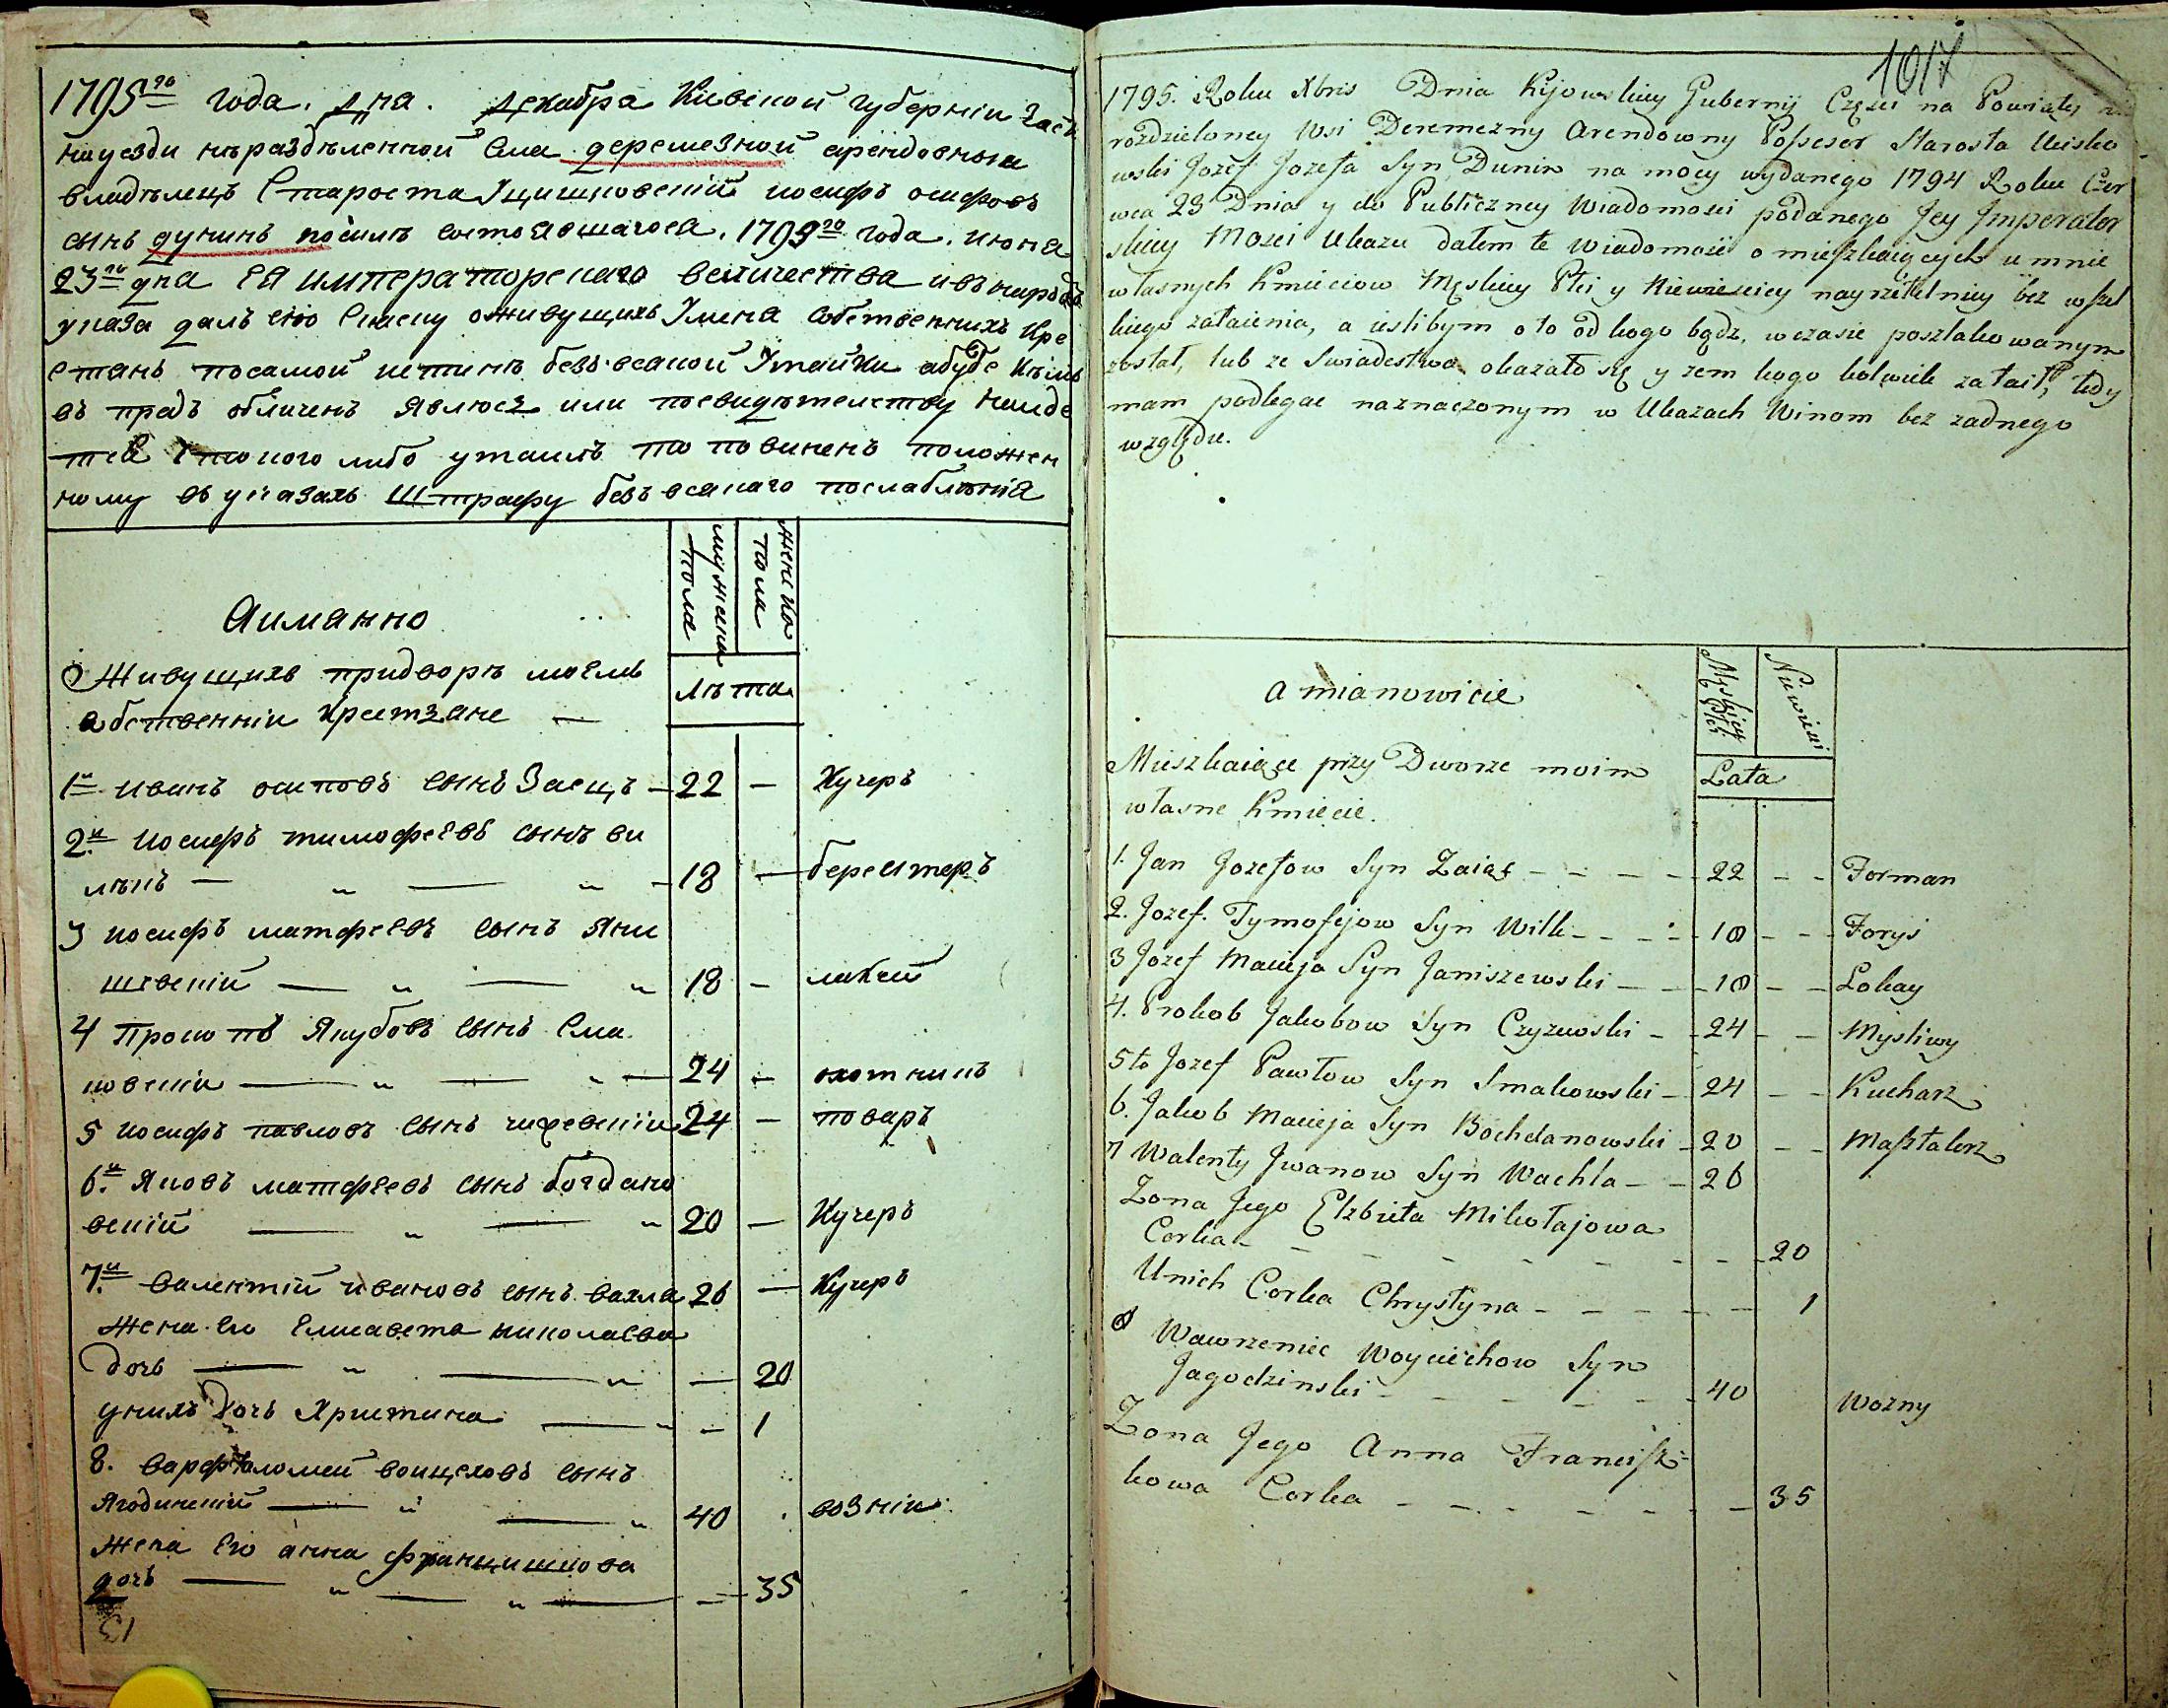 1795го года. дня. декабря Киевской губернии част
на уезди нъраздѣленной Села деремезной арендовный
владѣлецъ Староста Уцишковский иосифъ осифовъ
сынъ дунинъ посилѣ состоявшагося. 1794го года. июня
23го дня Ея императорскаго величества ивънародъ
указа далъ сию Скаску оживущихъ Умена собственнихъ кре
стянъ посамой истинѣ безъ всякой Утайки абуде кѣмъ
въ предъ обличенъ явлюсъ или посвидѣтелству найде
тся что кого либо утаилъ то повиненъ положен
ному въ указахъ Штрафу безъ всякаго послабления
Аимянно
мужеска пола
женска пола
лѣта
О Живущихъ придворѣ моемъ
собственнии крестяне —
1й иванъ осиповъ сынъ Заецъ — 22 — Кучеръ
2й иосифъ тимофеевъ сынъ ви
лькъ — " — " — 18 — береитеръ
3 иосифъ матфеевъ сынъ Яни
шевский — " — " 18 — лакей
4 Прокопъ Якубовъ сынъ Сма
ковский — " — " — 24 — охотникъ
5 иосифъ павловъ сынъ чижевский 24 — поваръ
6й Яковъ матфеевъ сынъ богдано
вский — " — " 20 — Кучеръ
7й валентий ивановъ сынъ вахла 26 — Кучеръ
Жена его Елисавета николаева
дочь — " — " — 20
унихъ дочь Христина — " — 1
8. варфоломей воицеховъ сынъ
Ягодинский — " — " 40 . возний
Жена Его анна францишкова
дочь — " — " — — 35
13
1017
1795. Roku Xbris Dnia Kijowskiey Gubernij Części na Powiaty nie
rozdzieloney Wsi Deremezny Arendowny Possesor Starosta Uciszko
wski Jozef Jozefa Syn Dunin na mocy wydanego 1794 Roku Czer
wca 23 Dnia y do Publiczney Wiadomosci podanego Jey Jmperator
skiey Mosci Ukazu dałem te Wiadomość o mieszkaiących u mnie
własnych Kmieciow Męskiey Płci y Niewieściey nayrzetelniey bez wszel
kiego zataienia, a ieslibym o to od kogo bądz, wczasie poszlakowanym
został, lub ze Swiadectwa okazało się y żem kogo kolwiek zataił, tedy
mam podlegać naznaczonym w Ukazach Winom bez żadnego
względu.
a mianowicie
Męskiey Płci
Niewiesci
Lata
Mieszkaiące przy Dworze moim
własne Kmiecie.
1. Jan Jozefow Syn Zaiąc - - - - 22 - - Forman
2. Jozef. Tymofejow Syn Wilk - - - - 18 - - Foryś
3 Jozef Macieja Syn Janiszewski - - 18 - - Lokay
4. Prokob Jakobow Syn Czyzewski - - 24 - - Mysliwy
5to Jozef Pawłow Syn Smakowski - 24 - - Kucharz
6. Jakob Macieja Syn Bochdanowski - 20 - - Masztalerz
7 Walenty Jwanow Syn Wachla - - 26
Zona Jego Elzbieta Mikołajowa
Corka - - - - - - - - 20
Unich Corka Chrystyna - - - - - 1
8 Wawrzeniec Woyciechow Syn
Jagodzinski - - - - - 40 Wozny
Zona Jego Anna Francisz-
kowa Corka - - - - - - - 35